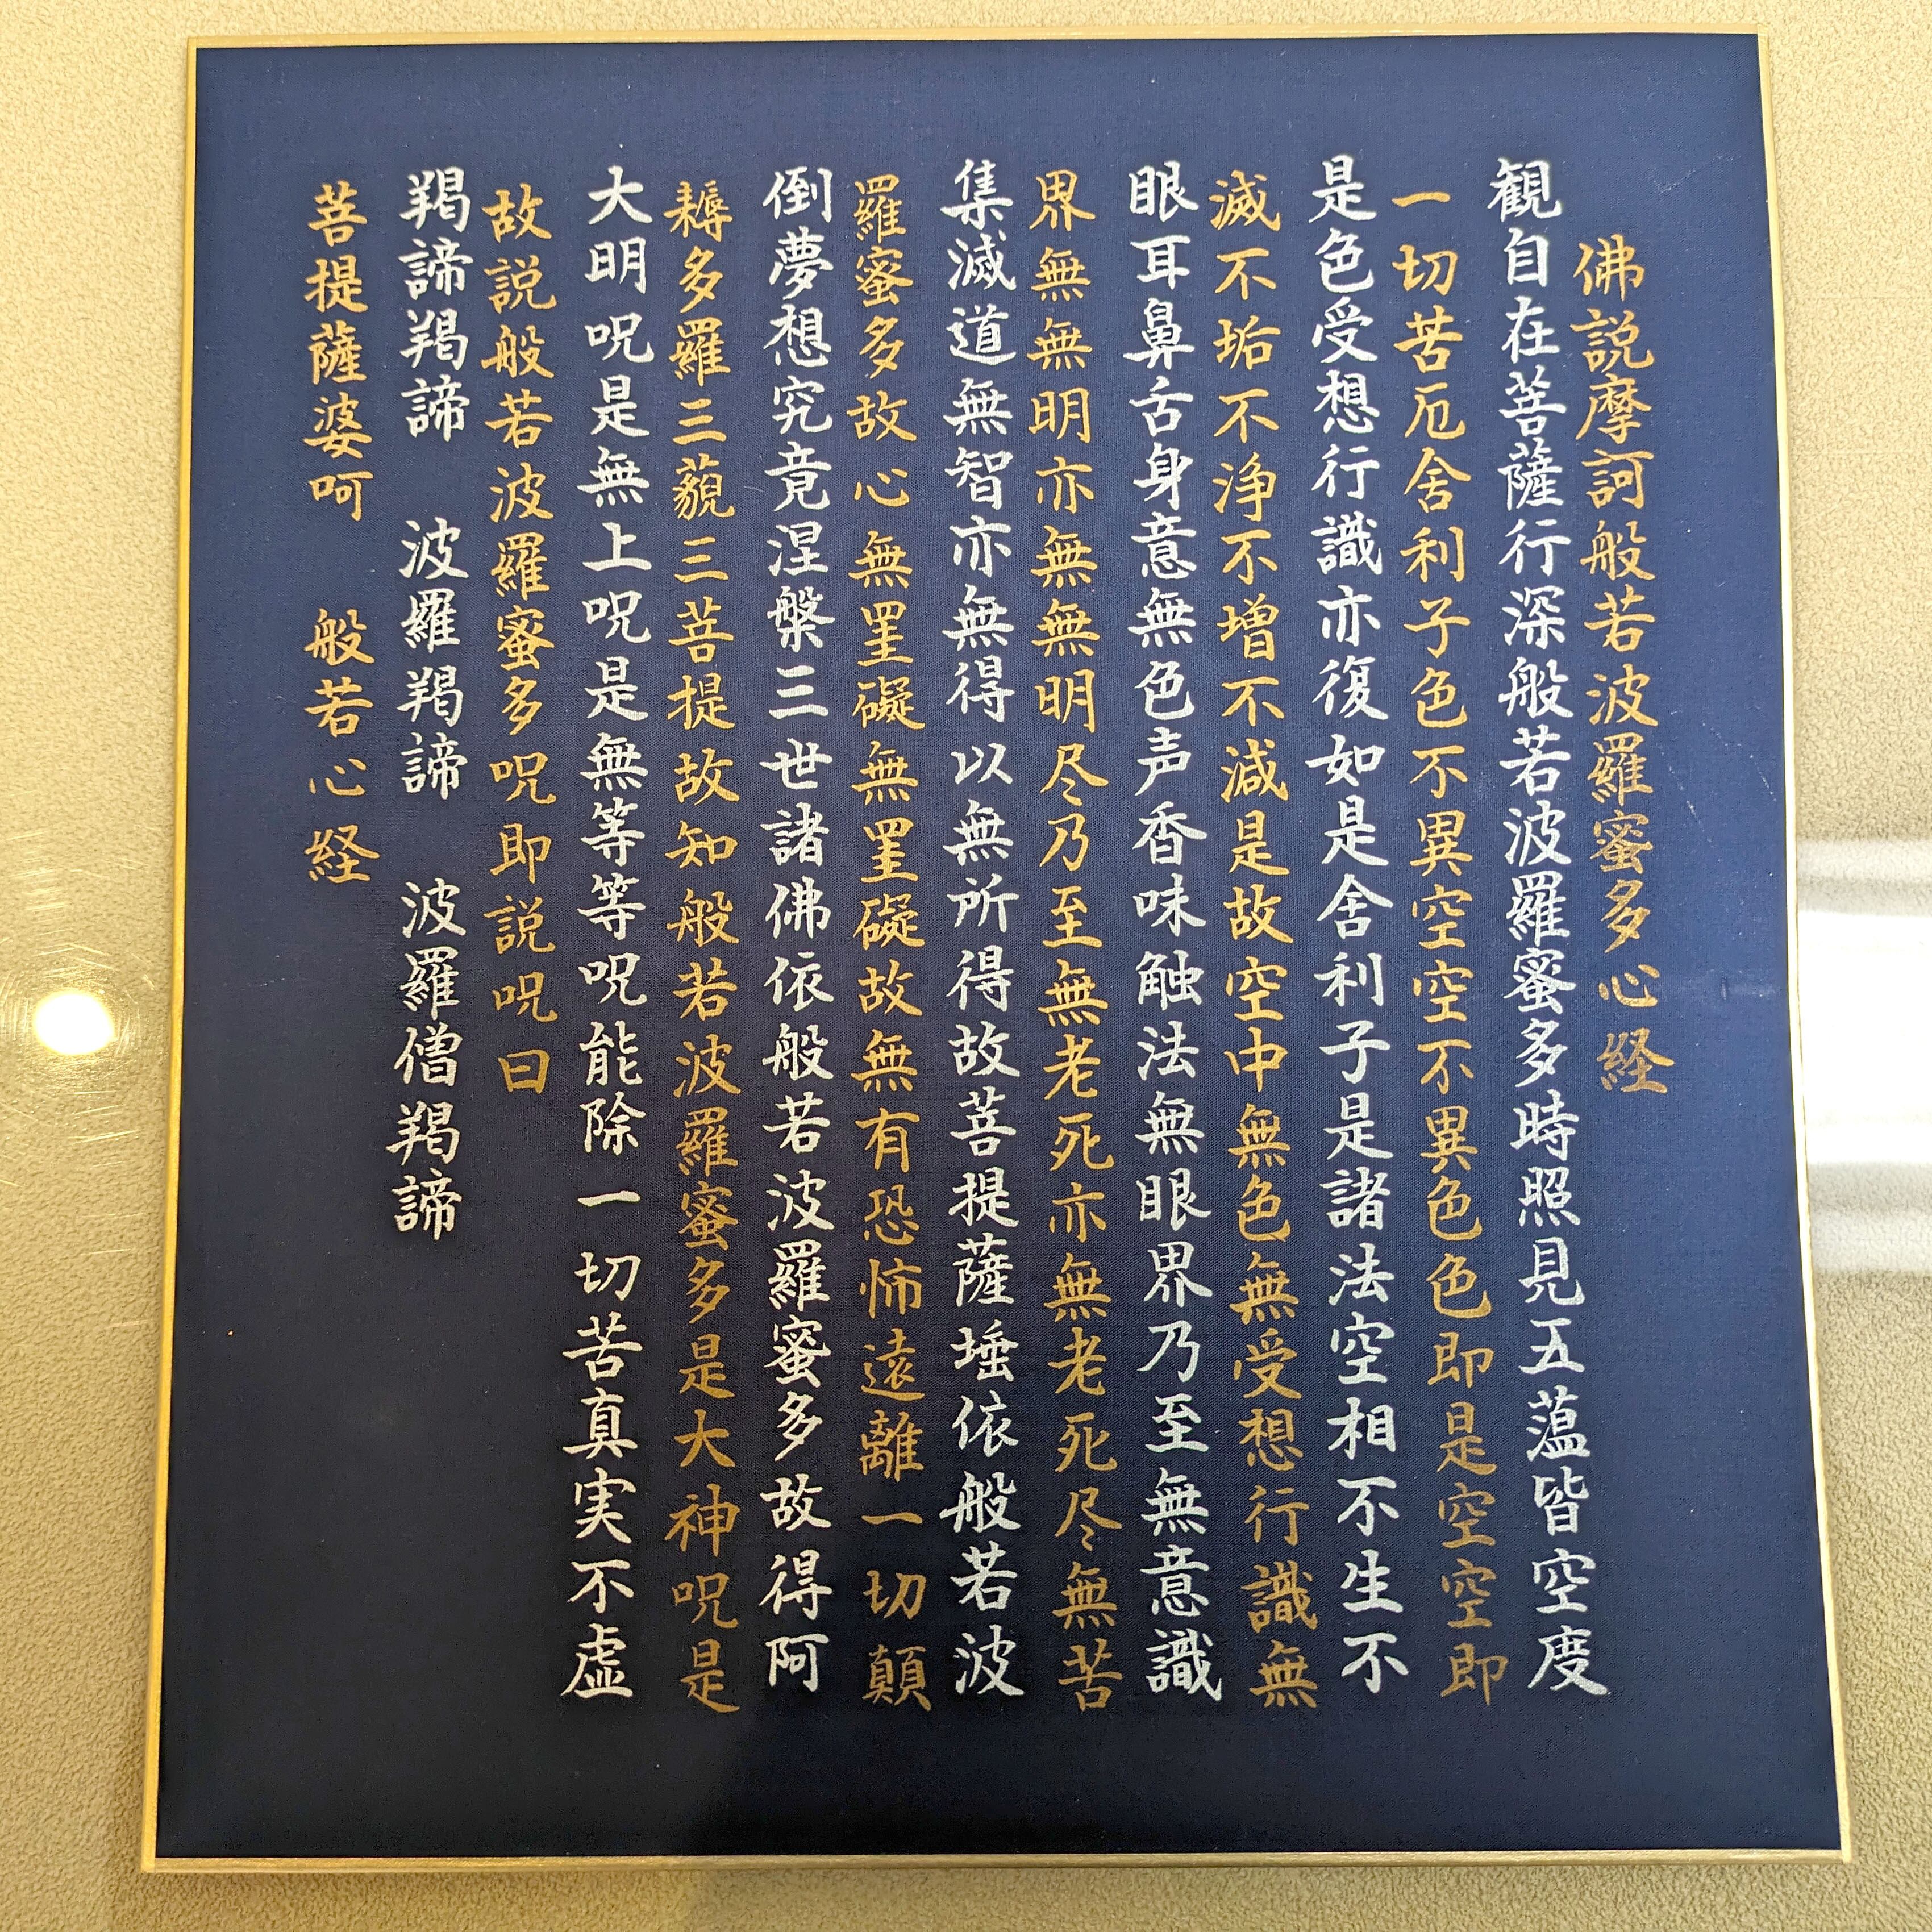 佛説摩訶般若波羅蜜多心経
観自在菩薩行深般若波羅蜜多時照見五薀皆空度
一切苦厄舍利子色不異空空不異色色即是空空即
是色受想行識亦復如是舍利子是諸法空相不生不
滅不垢不浄不増不減是故空中無色無受想行識無
眼耳鼻舌身意無色声香味触法無眼界乃至無意識
界無無明亦無無明尽乃至無老死亦無老死尽無苦
集滅道無智亦無得以無所得故菩提薩埵依般若波
羅蜜多故心無罣礙無罣礙故無有恐怖遠離一切顛
倒夢想究竟涅槃三世諸佛依般若波羅蜜多故得阿
耨多羅三藐三菩提故知般若波羅蜜多是大神呪是
大明呪是無上呪是無等等呪能除一切苦真実不虚
故説般若波羅蜜多呪即説呪曰
羯諦羯諦 波羅羯諦 波羅僧羯諦
菩提薩婆呵 般若心経